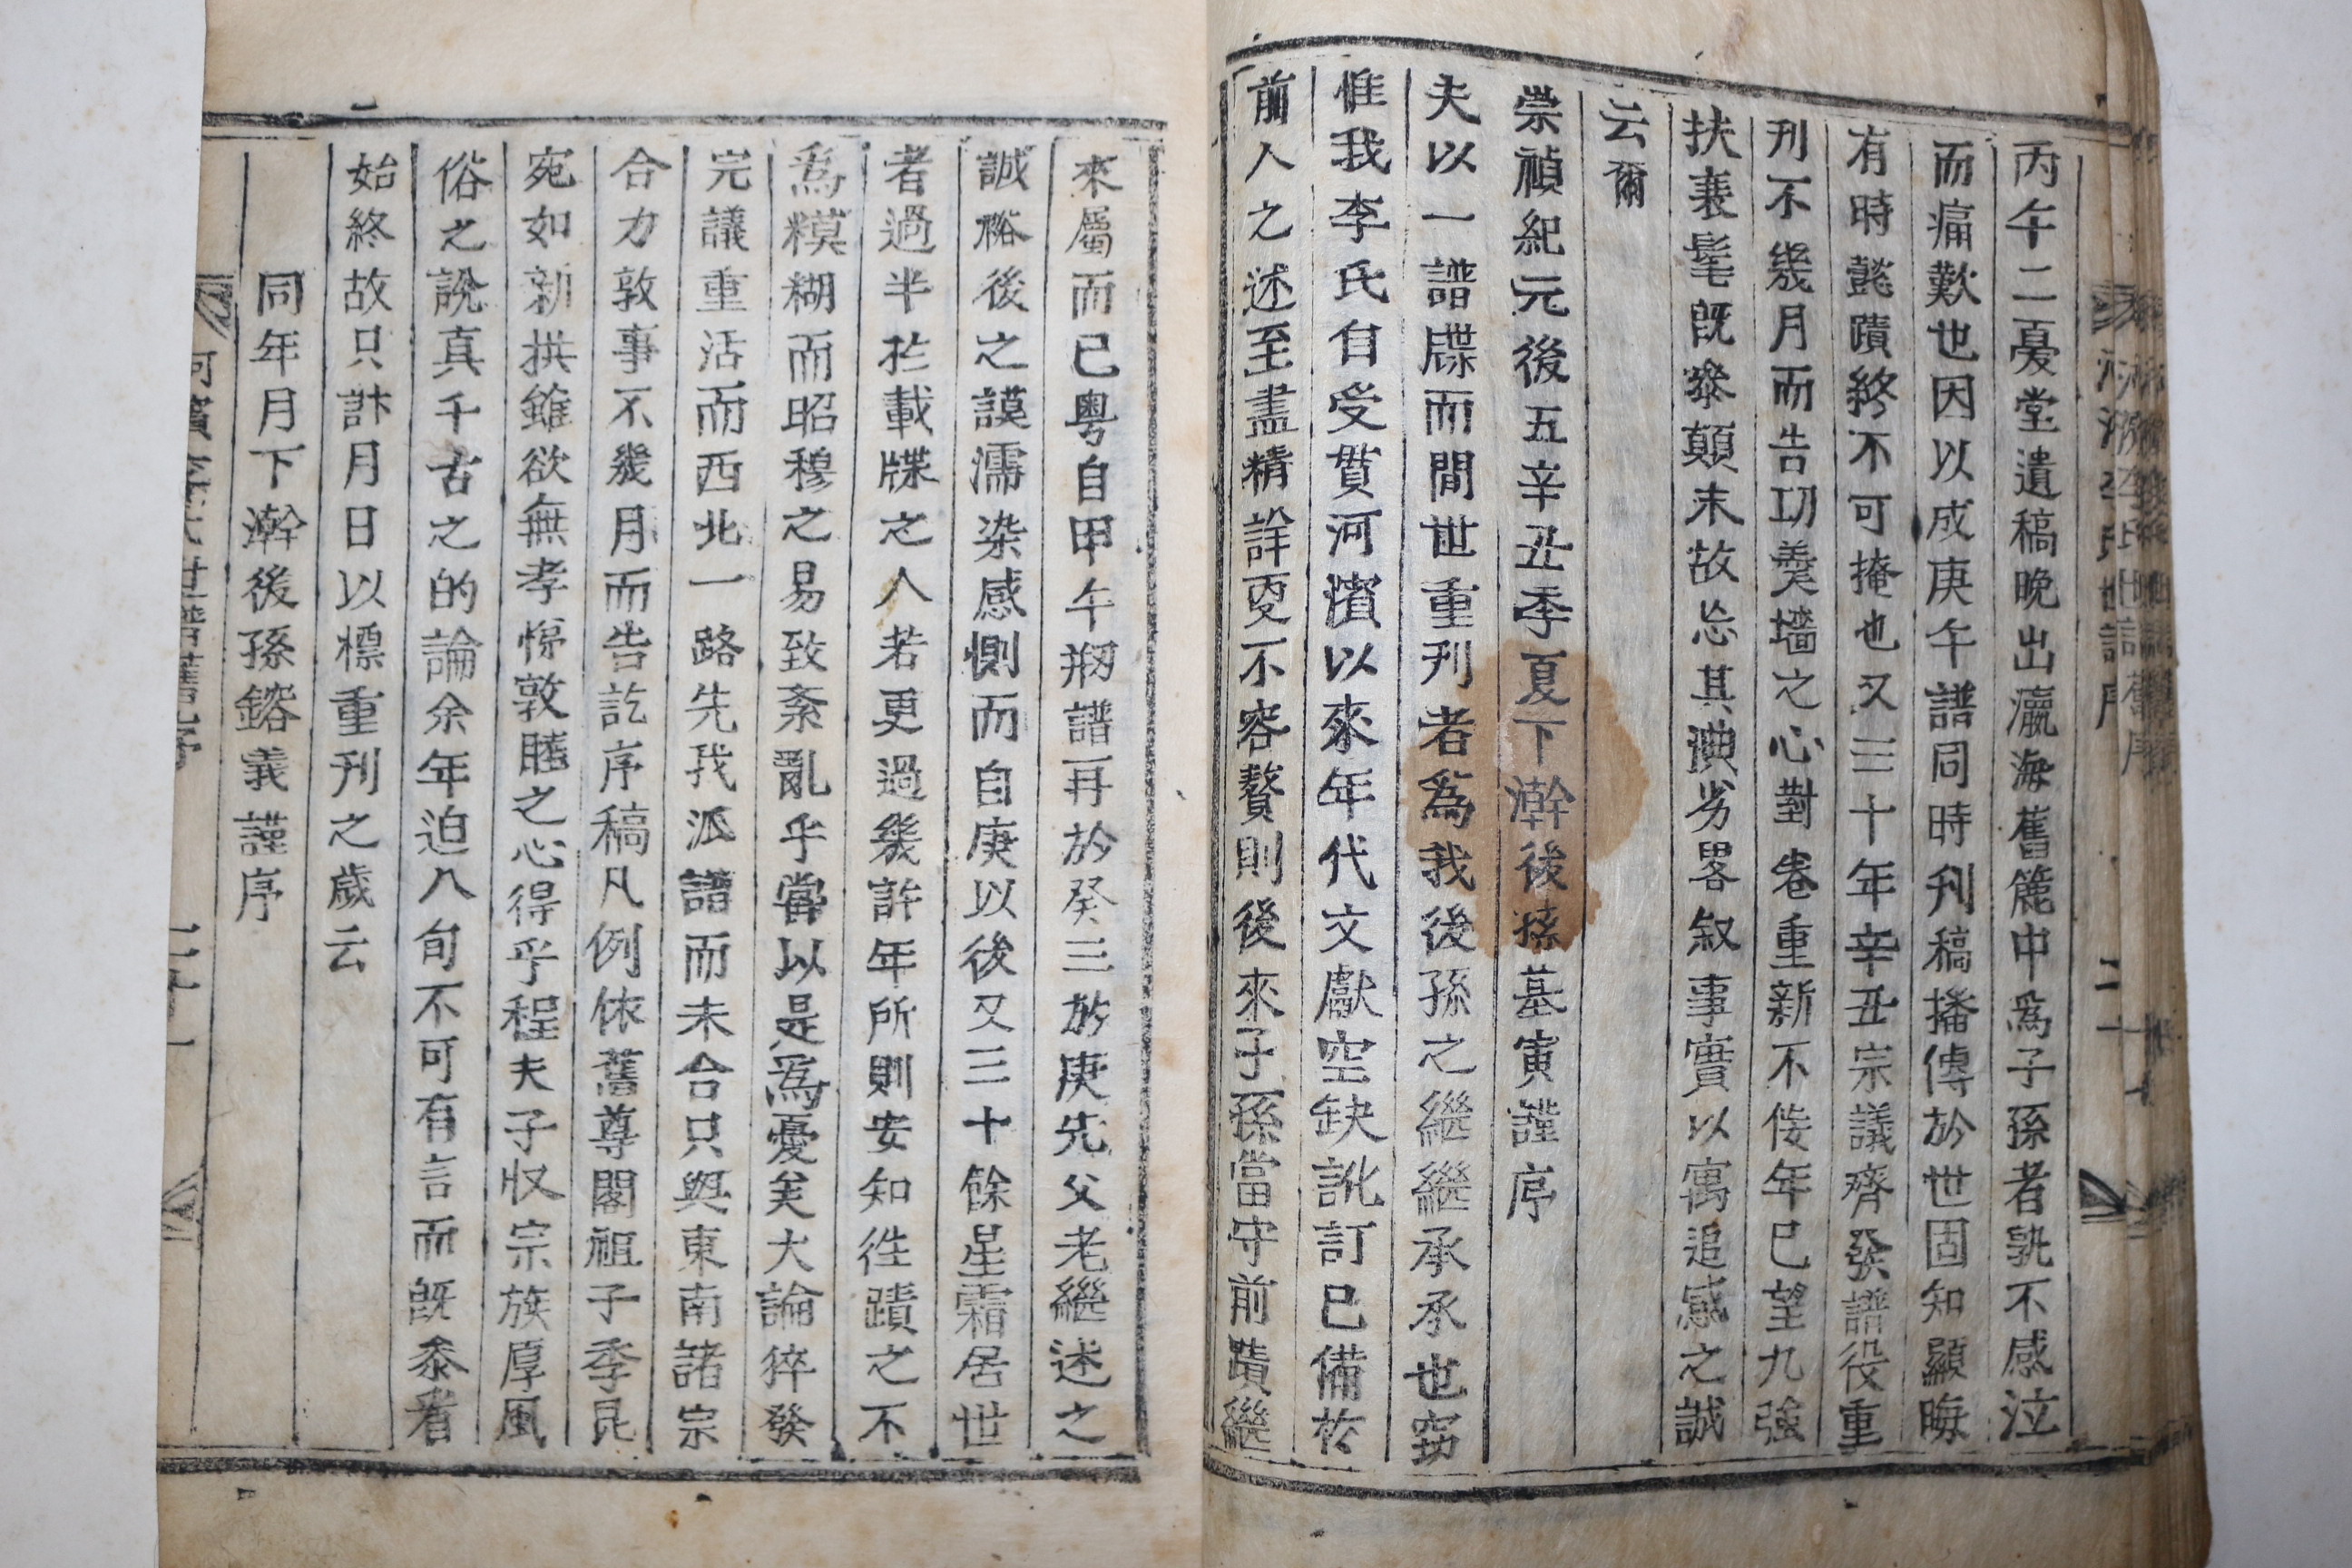 丙午二憂堂遺稿晚出瀛海舊簏中爲子孫者孰不感泣
而痛歎也因以成庚午譜同時刋稿播傳於世固知顯晦
有時懿蹟終不可掩也又三十年辛丑宗議齊發譜役重
刋不幾月而告功羹墻之心對卷重新不佞年已望九強
扶衰髦旣叅顚末故忘其淟劣畧叙事實以寓追感之誠
云爾
崇禎紀元後五辛丑季夏下澣後孫基寅謹序
夫以一譜牒而間世重刋者爲我後孫之繼繼承承也竊
惟我李氏自受貫河濱以來年代文獻空缺訛訂已備於
前人之述至盡精詳更不容贅則後來子孫當守前蹟繼
來屬而已粤自甲午刱譜再於癸三於庚先父老繼述之
誠裕後之謨濡染感惻而自庚以後又三十餘星霜居世
者過半於載牒之人若更過幾許年所則安知徃蹟之不
爲糢糊而昭穆之易致紊亂乎當以是爲憂矣大論猝發
完議重活而西北一路先我派譜而未合只與東南諸宗
合力敦事不幾月而告訖序稿凡例依舊尊閣祖子季昆
宛如新拱雖欲無孝悌敦睦之心得乎程夫子収宗族厚風
俗之說真千古之的論余年迫八旬不可有言而旣忝耆
始終故只訃月日以標重刋之歲云
同年月下澣後孫鎔義謹序